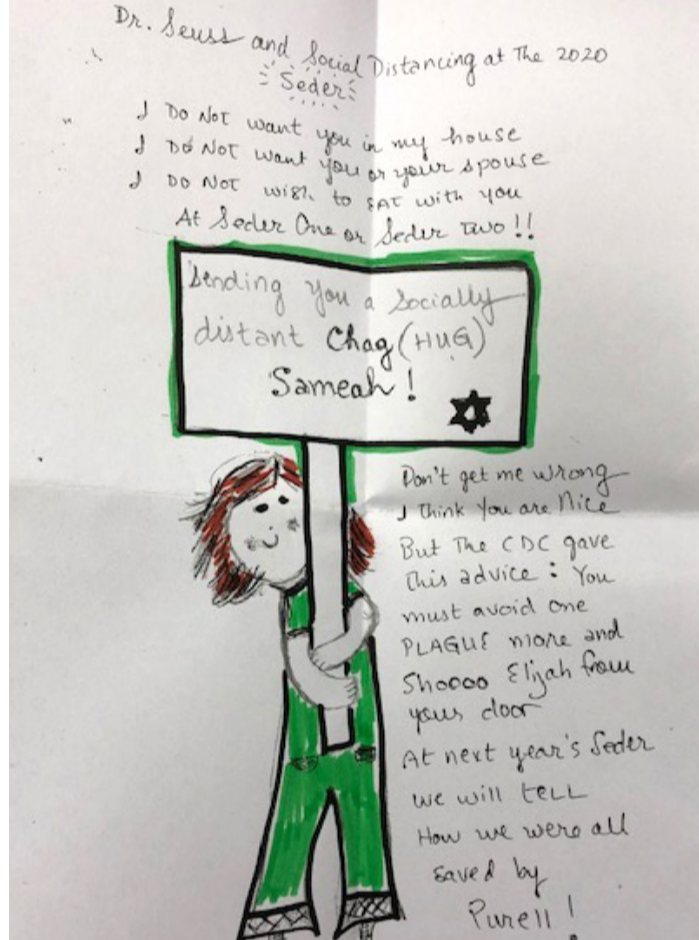 Dr. Seuss and Social Distancing at The 2020
Seder
I Do Not want you in my house
I Do Not want you or your spouse
I Do Not wish to EAT with you
At Seder One or Seder Two!!
Sending You a Socially
distant Chag (HUG)
Sameah!
Don't get me wrong
I Think You are Nice
But The CDC gave
This advice: You
must avoid one
PLAGUE more and
Shoooo Elijah from
your door
At next year's Seder
we will tELL
How we were all
saved by
Purell!